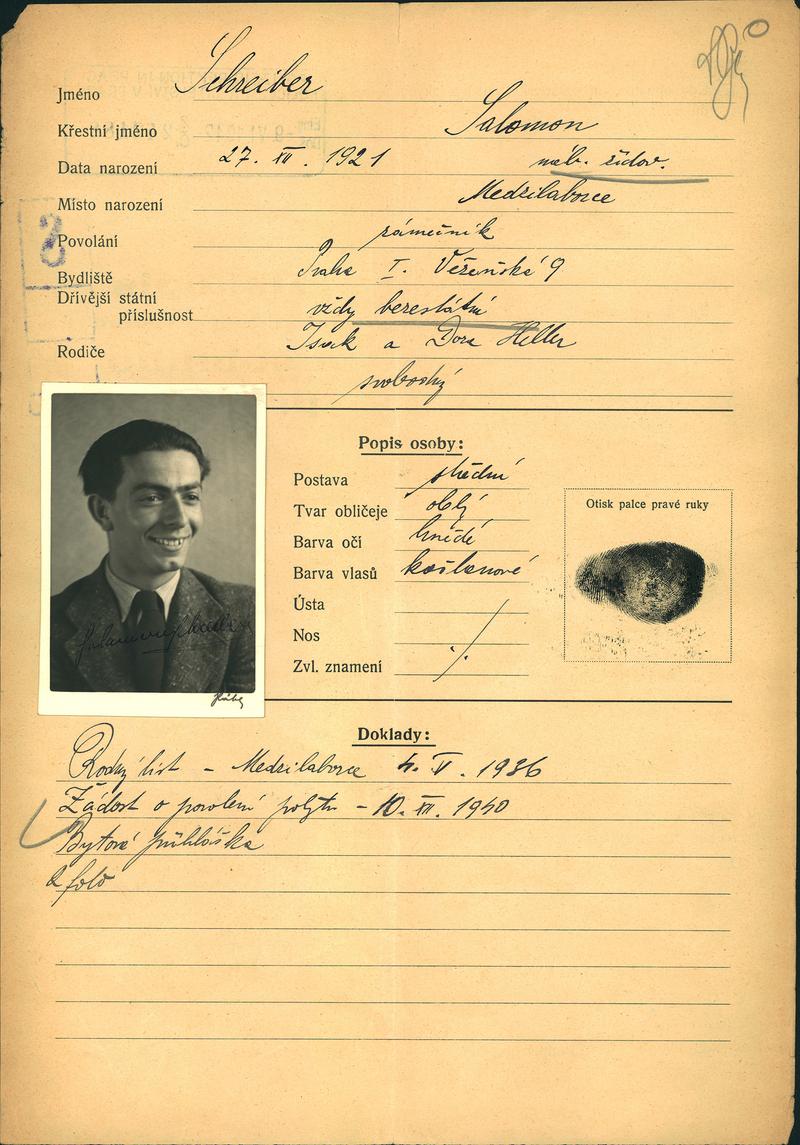 Jméno Schreiber
Křestní jméno Salomon
Data narození 27. XII. 1921 náb. židov.
Místo narození Medzilaborce
Povolání zámečník
Bydliště Praha I. Vězeňská 9
Dřívější státní
příslušnost vždy bezestátní
Rodiče Isak a Dora Heller
svobodný
Popis osoby:
Postava střední
Tvar obličeje oblý
Barva očí hnědé
Barva vlasů kaštanové
Ústa
Nos
Zvl. znamení
Otisk palce pravé ruky
Doklady:
Rodný list - Medzilaborce 4. V. 1936
Žádost o povolení pobytu - 10. XII. 1940
Bytová přihláška
2 foto